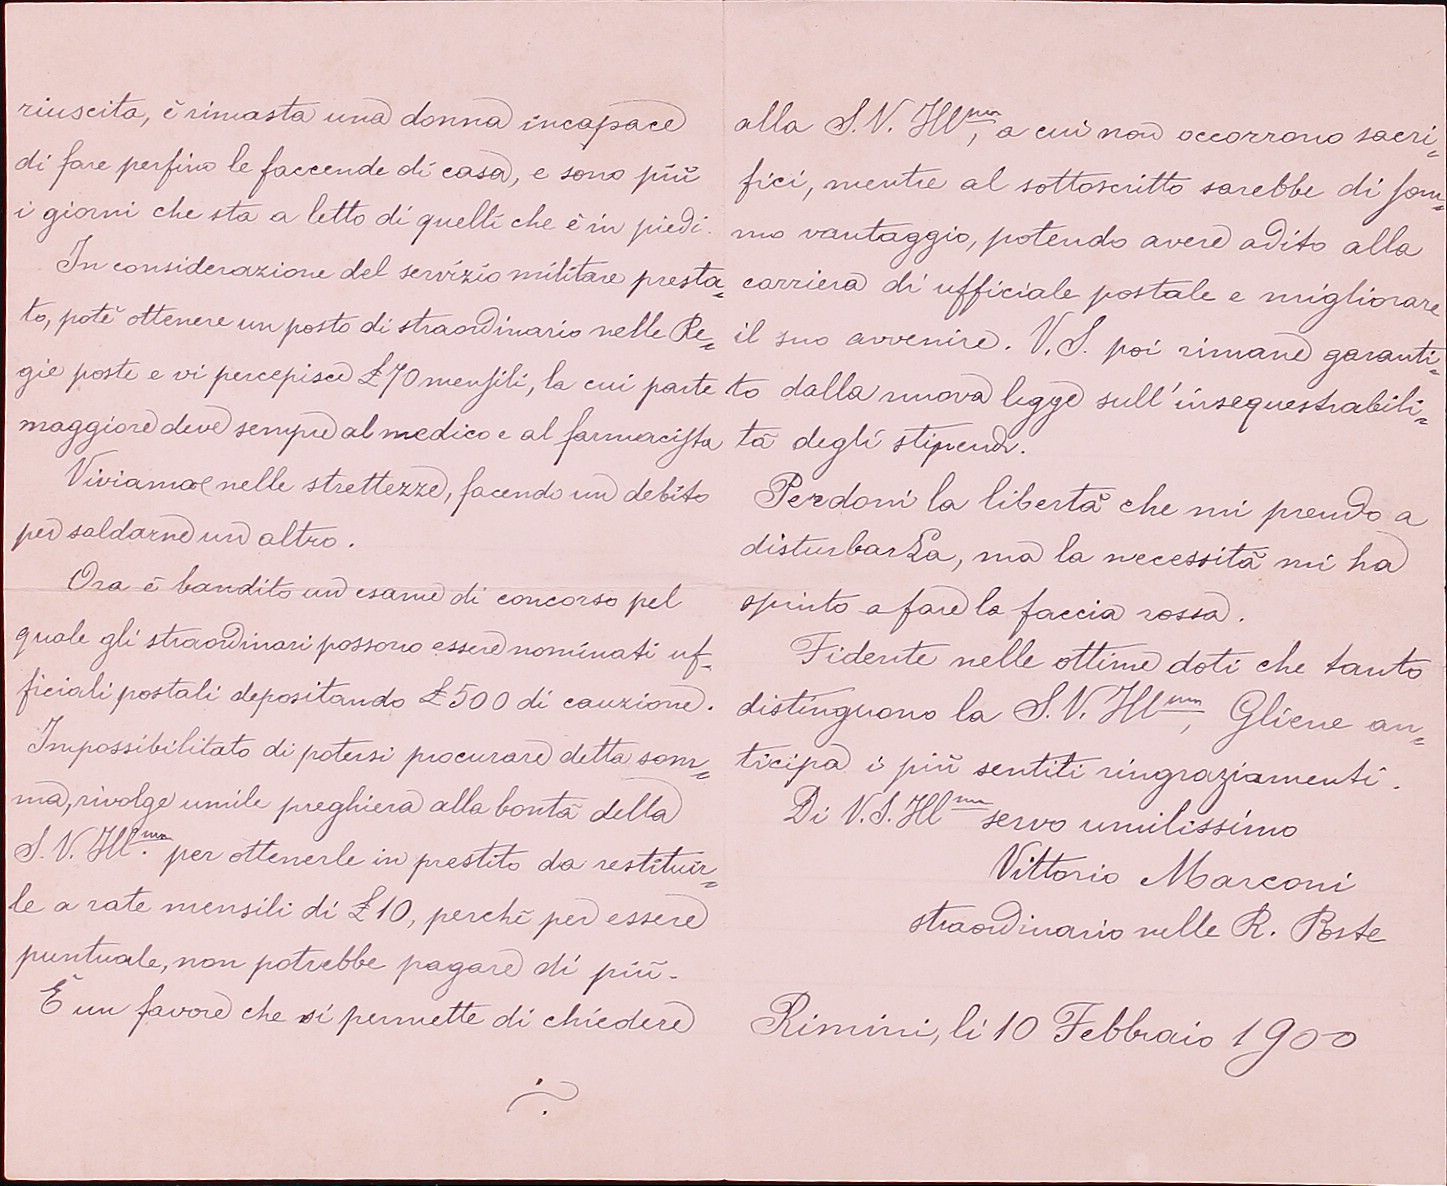 riuscita, è rimasta una donna incapace
di fare perfino le faccende di casa, e sono più
i giorni che sta a letto di quelli che è in piedi.
In considerazione del servizio militare presta=
to, potè ottenere un posto di straordinario nelle Re=
gie poste e vi percepisce £70 mensili, la cui parte
maggiore deve sempre al medico e al farmacista
Viviamo nelle strettezze, facendo un debito
per saldarne un altro.
Ora è bandito un esame di concorso pel
quale gli straordinari possono essere nominati uf=
ficiali postali depositando £500 di cauzione.
Impossibilitato di potersi procurare detta som=
ma, rivolge umile preghiera alla bontà della
S. V. Ill.ma per ottenerle in prestito da restituir=
le a rate mensili di £10, perchè per essere
puntuale, non potrebbe pagare di più.
È un favore che si permette di chiedere
./.
alla S. V. Illma, a cui non occorrono sacri=
fici, mentre al sottoscritto sarebbe di som=
mo vantaggio, potendo avere adito alla
carriera di ufficiale postale e migliorare
il suo avvenire. V. S. poi rimane garanti=
to dalla nuova legge sull'insequestrabili=
tà degli stipendi.
Perdoni la libertà che mi prendo a
disturbarLa, ma la necessità mi ha
spinto a fare la faccia rossa.
Fidente nelle ottime doti che tanto
distinguono la S. V. Illma, Gliene an=
ticipa i più sentiti ringraziamenti.
Di V. S. Illma servo umilissimo
Vittorio Marconi
straordinario nelle R. Poste
Rimini, li 10 Febbraio 1900